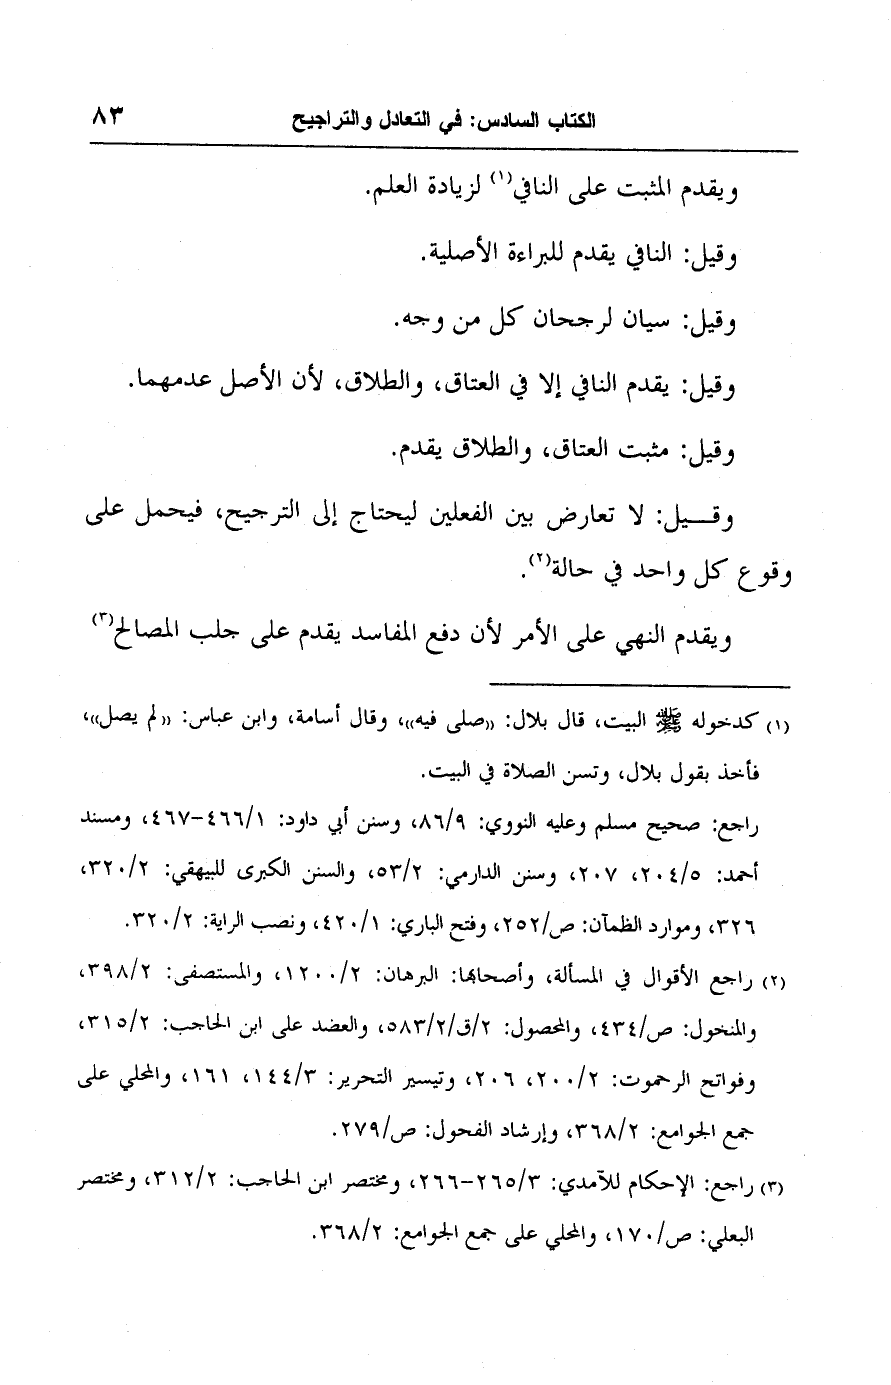 الكتاب السادس: في التعادل والتراجيح ٨٣
ويقدم المثبت على النافي(١) لزيادة العلم.
وقيل: النافي يقدم للبراءة الأصلية.
وقيل: سيان لرجحان كل من وجه.
وقيل: يقدم النافي إلا في العتاق، والطلاق، لأن الأصل عدمهما.
وقيل: مثبت العتاق، والطلاق يقدم.
وقــيل: لا تعارض بين الفعلين ليحتاج إلى الترجيح، فيحمل على
وقوع كل واحد في حالة(٢).
ويقدم النهي على الأمر لأن دفع المفاسد يقدم على جلب المصالح(٣)
(١) كدخوله ﷺ البيت، قال بلال: «صلى فيه»، وقال أسامة، وابن عباس: «لم يصل»،
فأخذ بقول بلال، وتسن الصلاة في البيت.
راجع: صحيح مسلم وعليه النووي: ٨٦/٩، وسنن أبي داود: ٤٦٦/١-٤٦٧، ومسند
أحمد: ٢٠٤/٥، ٢٠٧، وسنن الدارمي: ٥٣/٢، والسنن الكبرى للبيهقي: ٣٢٠/٢،
٣٢٦، وموارد الظمآن: ص/٢٥٢، وفتح الباري: ٤٢٠/١، ونصب الراية: ٣٢٠/٢.
(٢) راجع الأقوال في المسألة، وأصحابها: البرهان: ١٢٠٠/٢، والمستصفى: ٣٩٨/٢،
والمنخول: ص/٤٣٤، والمحصول: ٢/ق/٥٨٣/٢، والعضد على ابن الحاجب: ٣١٥/٢،
وفواتح الرحموت: ٢٠٠/٢، ٢٠٦، وتيسير التحرير: ١٤٤/٣، ١٦١، والمحلي على
جمع الجوامع: ٣٦٨/٢، وإرشاد الفحول: ص/٢٧٩.
(٣) راجع: الإحكام للآمدي: ٢٦٥/٣-٢٦٦، ومختصر ابن الحاجب: ٣١٢/٢، ومختصر
البعلي: ص/١٧٠، والمحلي على جمع الجوامع: ٣٦٨/٢.